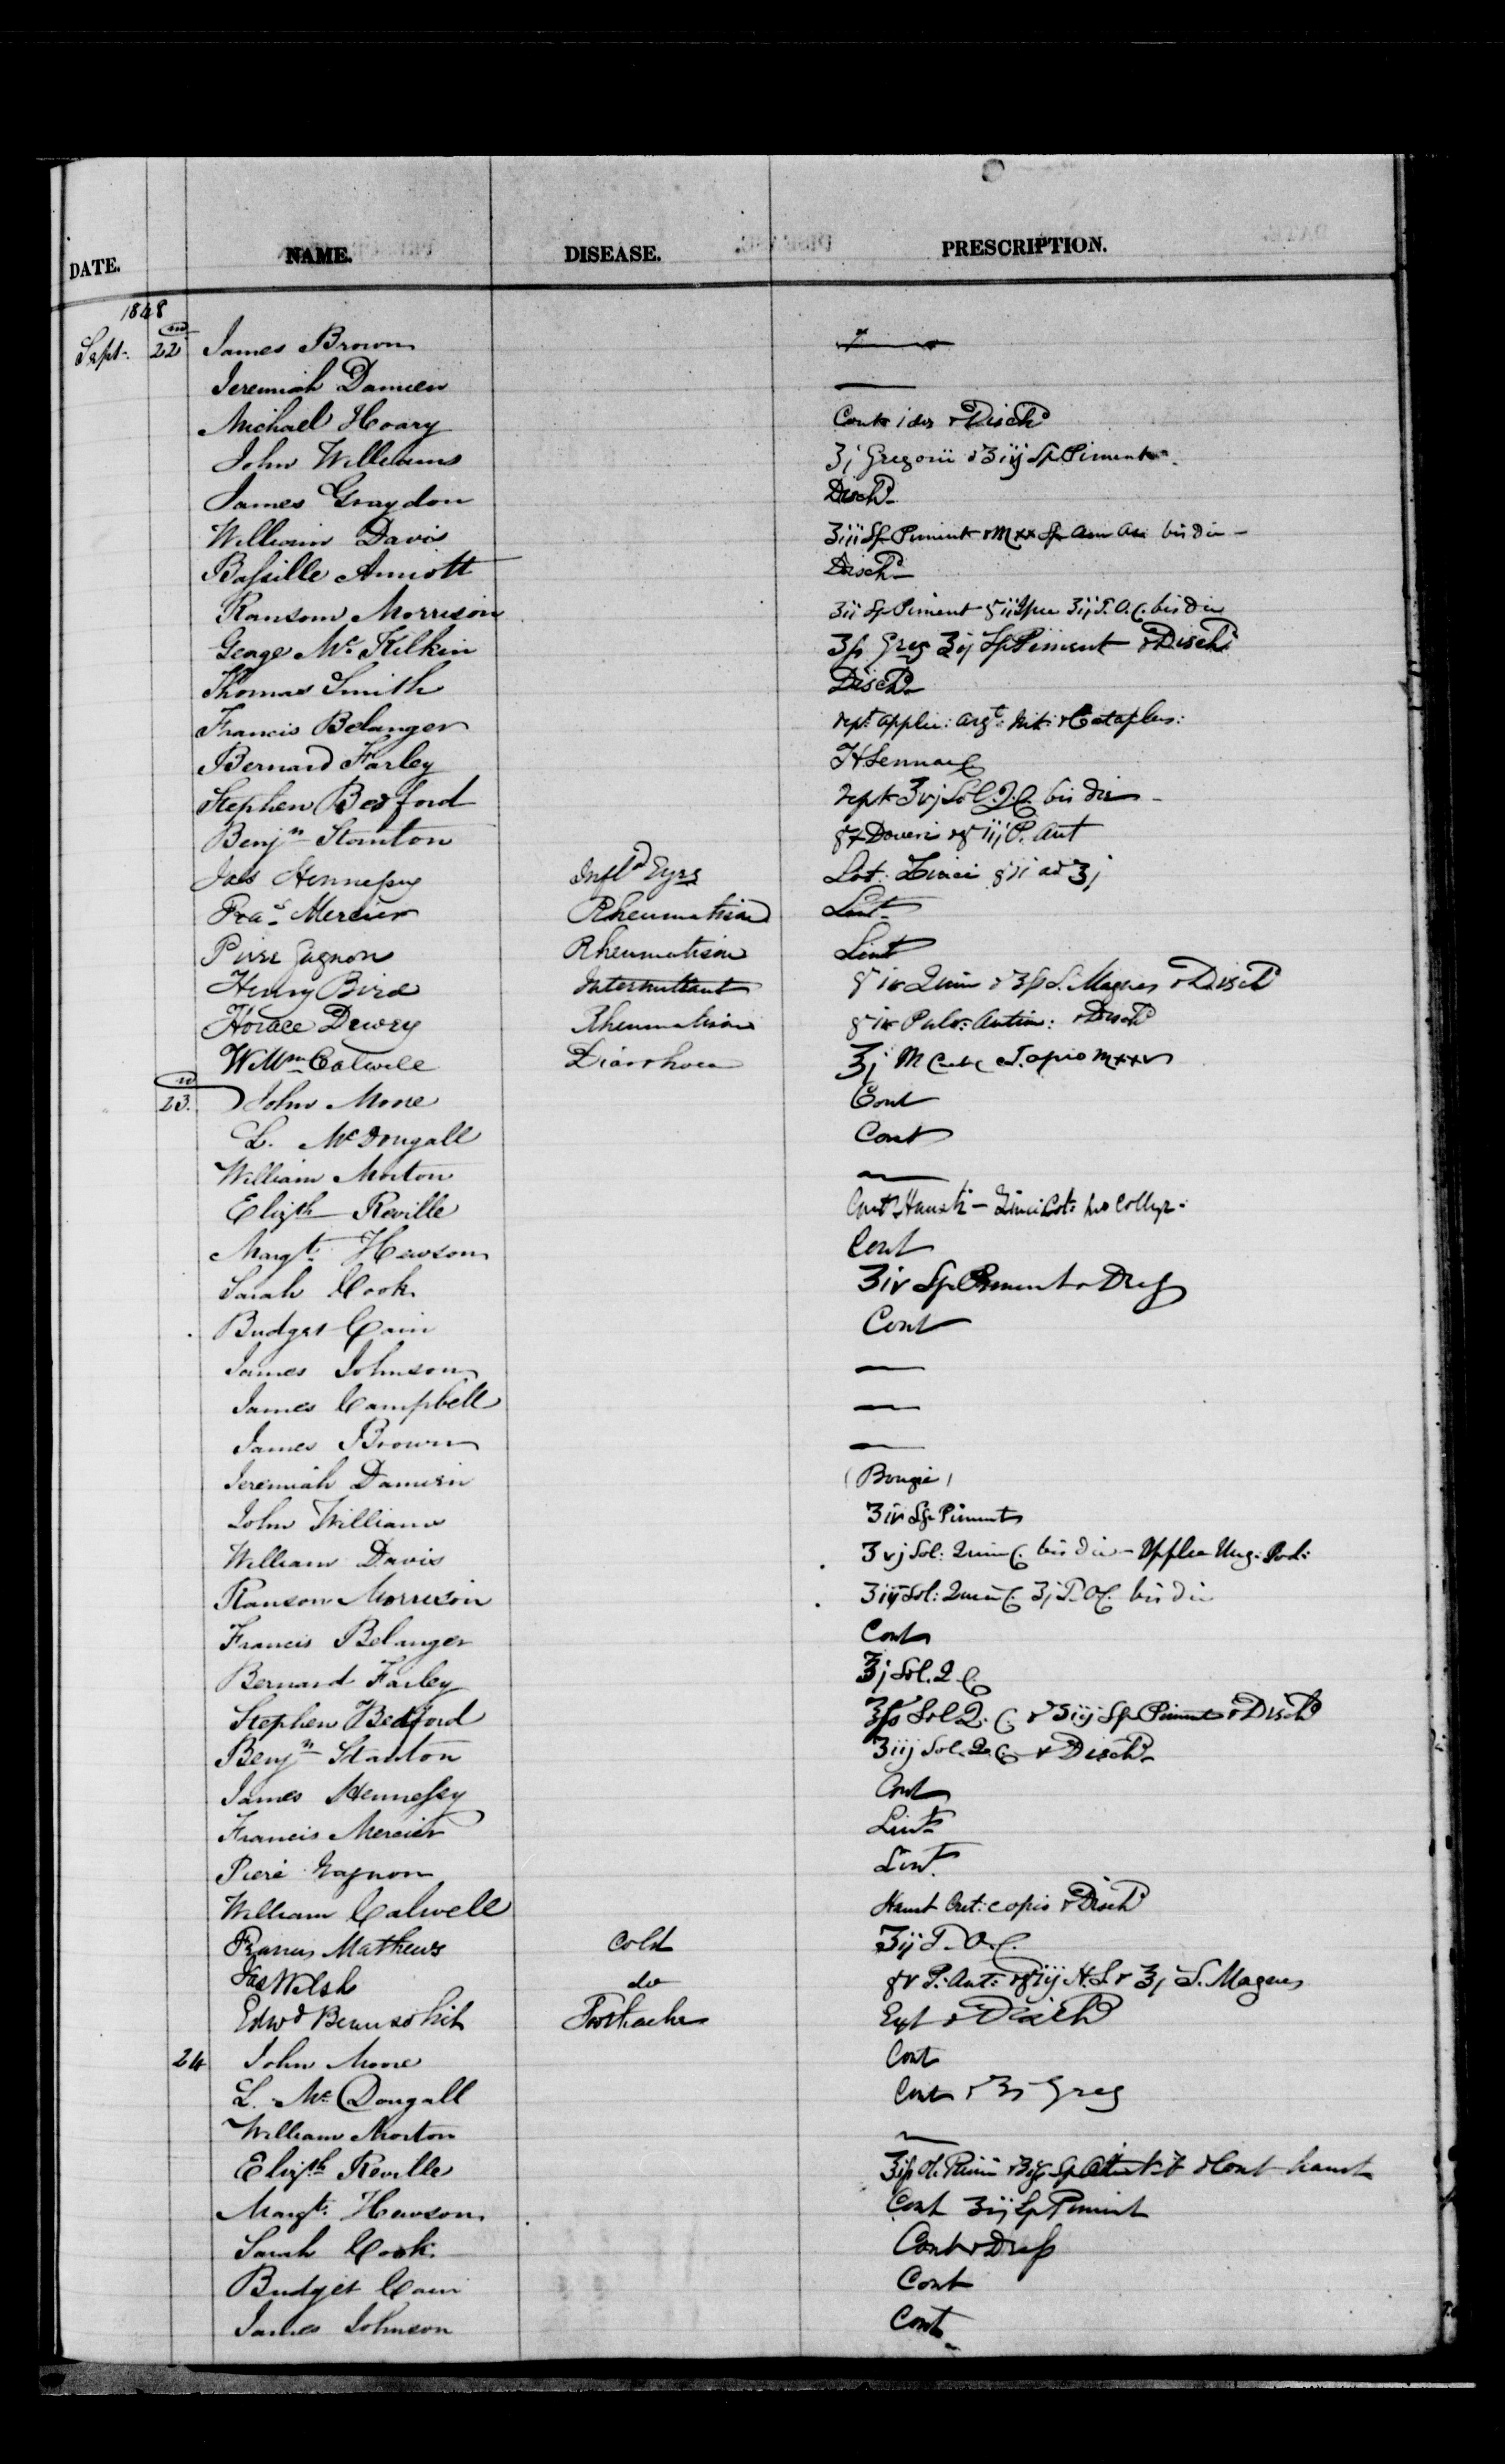 DATE. NAME. DISEASE. PRESCRIPTION.
1848
Sept. 22 James Brown —
Jeremiah Damien —
Michael Hoary Cont & Disch^d
John Williams ʒj Gregorii & ʒiij Sp. Piment
James Graydon Disch^d
William Davis ʒiii Sp Piment & M xx Sp Am bis die
Bassille Amiott Disch^d
Ransom Morrison ʒii Sp Piment ʒij T.O.C. bis die
George Mc Kilkin ʒss Greg ʒij Sp Piment & Disch^d
Thomas Smith Disch^d
Francis Belanger rept. applic: Arg^t: Nit: & Cataplas:
Bernard Farley H Sennae C
Stephen Bedford rept ʒvj Sol. Q.C. bis die
Benj^n Stanton gr Doveri & gr iij P. Ant
Jas Hennessy Infl^d Eyes Lot: Zinci gr ii ad ʒj
Fra^s Mercier Rheumatism Lint
Piere Gagnon Rheumatism Lint
Henry Bird Intermittent gr iv Quin & ʒss S. Magnes & Disch^d
Horace Dewey Rheumatism gr iv Pulv: Antim: & Disch^d
W^m Calwell Diarrhoea ʒj M Cret c T. opio m xxv
23. John Moore Cont
L. Mc Dougall Cont
William Morton —
Eliz^th Reville Cont Haust: — Zinci Lot: pro Collyr:
Marg^t Hewson Cont
Sarah Cook ʒiv Sp Piment & Dress
Budget Cain Cont
James Johnson —
James Campbell —
James Brown —
Jeremiah Damien (Bougie)
John Williams ʒiv Sp Piment
William Davis ʒvj Sol: Quin C. bis die — Applic Ung: Iod:
Ransom Morrison ʒiij Sol: Quin C. ʒj T.O.C. bis die
Francis Belanger Cont
Bernard Farley ʒj Sol. Q C
Stephen Bedford ʒss Sol Q. C. & ʒiij Sp Piment & Disch^d
Benj^n Stanton ʒiij Sol. Q. C. & Disch^d
James Hennessy Cont
Francis Mercier Lint
Piere Gagnon Lint
William Calwell Haust Cret: c opio & Disch^d
Francis Mathews Cold ʒij T.O.C.
Jas Welsh do gr v P. Ant: & gr iij H.S. & ʒj S. Magnes
Edw^d Toothache Ext & Disch^d
24 John Moore Cont
L. Mc Dougall Cont & ʒj Greg
William Morton —
Eliz^th Reville & Cont haust
Marg^t Hewson Cont ʒij Sp Piment
Sarah Cook Cont & Dress
Budget Cain Cont
James Johnson Cont